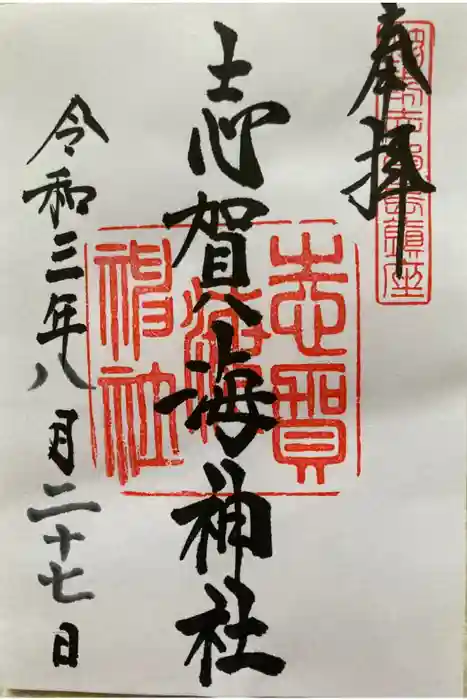 奉拝
志賀島鎮座
志賀海神社
志賀
海
神社
令和三年八月二十七日